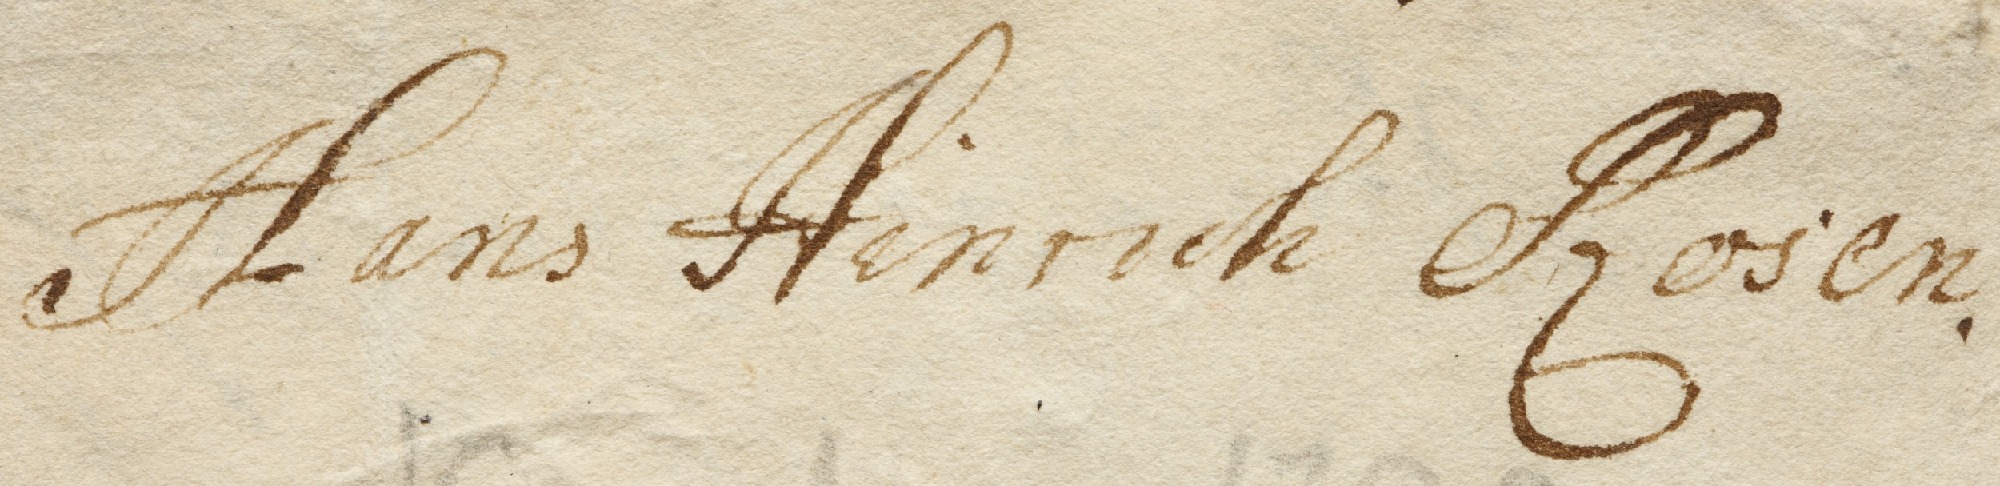 Hans Hinrich Rosen.